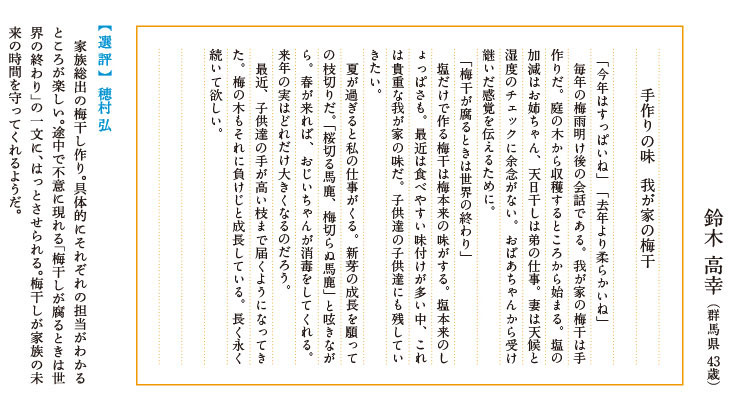 鈴木 高幸（群馬県 43歳）
手作りの味　我が家の梅干
「今年はすっぱいね」「去年より柔らかいね」
　毎年の梅雨明け後の会話である。我が家の梅干は手
作りだ。庭の木から収穫するところから始まる。塩の
加減はお姉ちゃん、天日干しは弟の仕事。妻は天候と
湿度のチェックに余念がない。おばあちゃんから受け
継いだ感覚を伝えるために。
「梅干が腐るときは世界の終わり」
　塩だけで作る梅干は梅本来の味がする。塩本来のし
ょっぱさも。最近は食べやすい味付けが多い中、これ
は貴重な我が家の味だ。子供達の子供達にも残してい
きたい。
　夏が過ぎると私の仕事がくる。新芽の成長を願って
の枝切りだ。「桜切る馬鹿、梅切らぬ馬鹿」と呟きなが
ら。春が来れば、おじいちゃんが消毒をしてくれる。
来年の実はどれだけ大きくなるのだろう。
　最近、子供達の手が高い枝まで届くようになってき
た。梅の木もそれに負けじと成長している。長く永く
続いて欲しい。
【選評】穂村 弘
　家族総出の梅干し作り。具体的にそれぞれの担当がわかる
ところが楽しい。途中で不意に現れる「梅干しが腐るときは世
界の終わり」の一文に、はっとさせられる。梅干しが家族の未
来の時間を守ってくれるようだ。